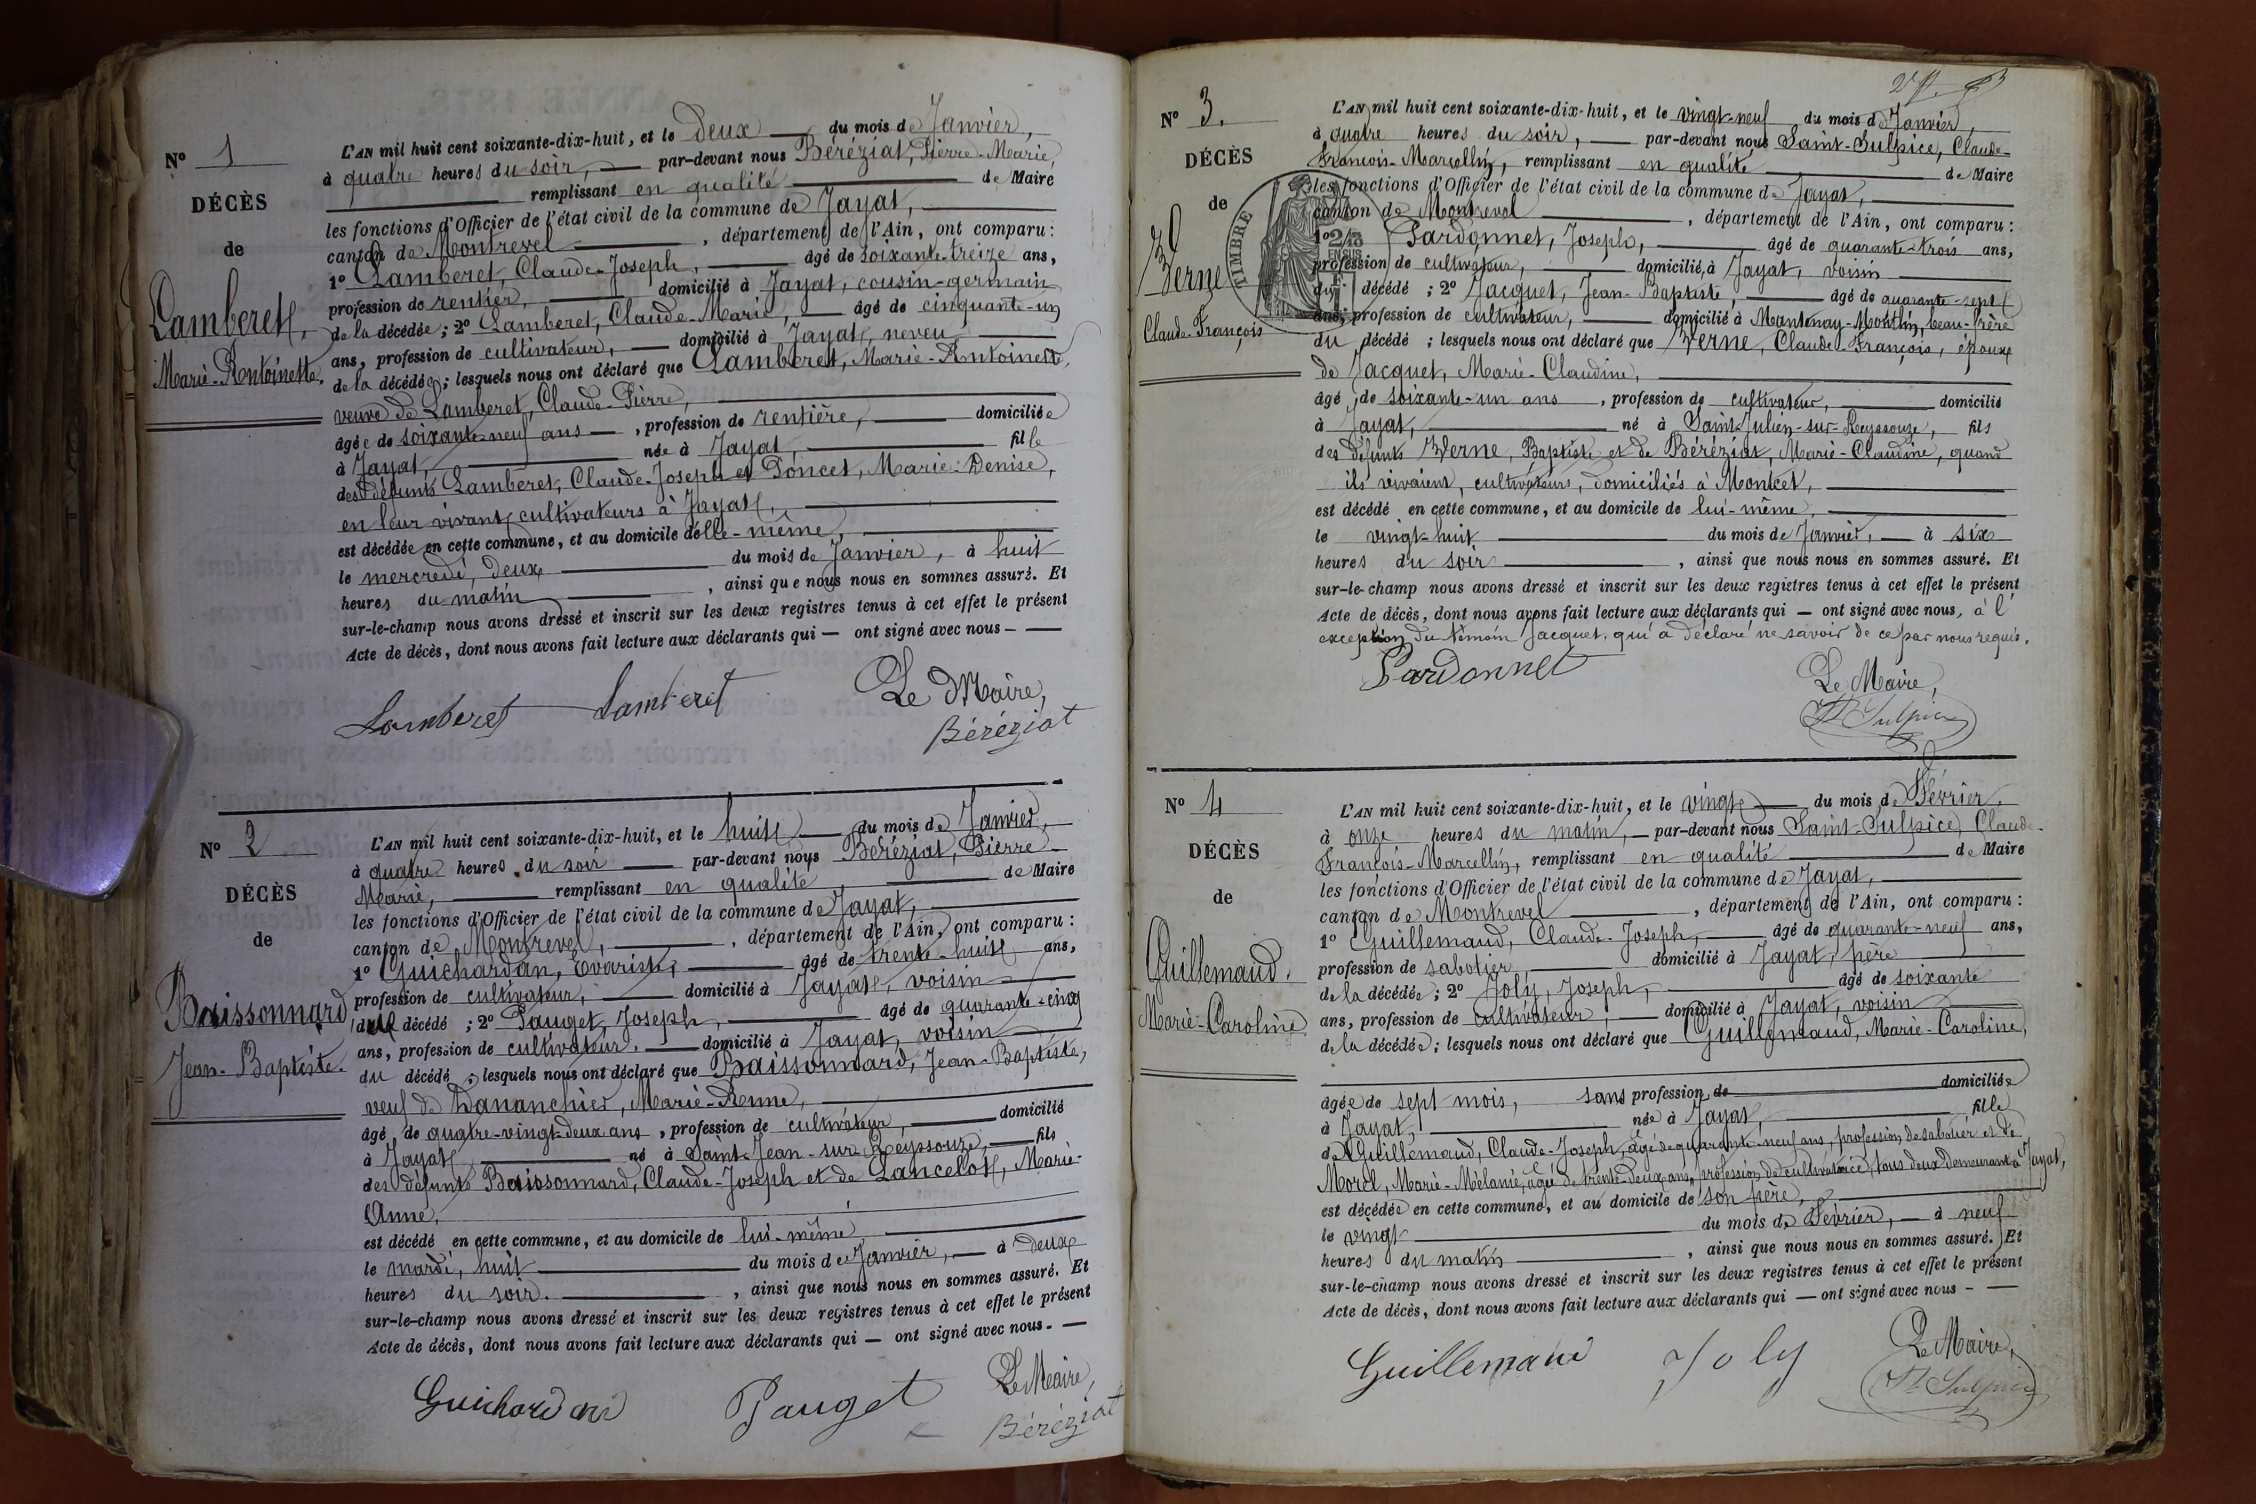 N° 1
DÉCÈS
de
Lamberet,
Marie-Antoinette.
L'AN mil huit cent soixante-dix-huit, et le deux du mois de Janvier,
à quatre heures du soir, par-devant nous Béréziat, Pierre-Marie,
remplissant en qualité de Maire
les fonctions d'Officier de l'état civil de la commune de Jayat,
canton de Montrevel, département de l'Ain, ont comparu :
1° Lamberet, Claude-Joseph, âgé de soixante-treize ans,
profession de rentier, domicilié à Jayat, cousin-germain
de la décédée ; 2° Lamberet, Claude-Marie, âgé de cinquante-un
ans, profession de cultivateur, domicilié à Jayat, neveu
de la décédée ; lesquels nous ont déclaré que Lamberet, Marie-Antoinette,
veuve de Lamberet, Claude-Pierre,
âgée de soixante-neuf ans, profession de rentière, domiciliée
à Jayat, née à Jayat, fille
des défunts Lamberet, Claude-Joseph et Poncet, Marie-Denise,
en leur vivant cultivateurs à Jayat,
est décédée en cette commune, et au domicile d'elle-même,
le mercredi, deux du mois de Janvier, à huit
heures du matin, ainsi que nous nous en sommes assuré. Et
sur-le-champ nous avons dressé et inscrit sur les deux registres tenus à cet effet le présent
Acte de décès, dont nous avons fait lecture aux déclarants qui — ont signé avec nous —
Lamberet Lamberet Le Maire,
Béréziat
N° 2
DÉCÈS
de
Baissonnard,
Jean-Baptiste.
L'AN mil huit cent soixante-dix-huit, et le huit du mois de Janvier,
à quatre heures du soir par-devant nous Béréziat, Pierre-
Marie, remplissant en qualité de Maire
les fonctions d'Officier de l'état civil de la commune de Jayat,
canton de Montrevel, département de l'Ain, ont comparu :
1° Guichardan, Evariste, âgé de trente-huit ans,
profession de cultivateur, domicilié à Jayat, voisin
du décédé ; 2° Pauget, Joseph, âgé de quarante-cinq
ans, profession de cultivateur, domicilié à Jayat, voisin
du décédé ; lesquels nous ont déclaré que Baissonnard, Jean-Baptiste,
veuf de Dananchier, Marie-Renne,
âgé de quatre-vingt-deux ans, profession de cultivateur, domicilié
à Jayat, né à Saint-Jean-sur-Reyssouze, fils
des défunts Baissonnard, Claude-Joseph et de Lancelot, Marie-
Anne,
est décédé en cette commune, et au domicile de lui-même,
le mardi, huit du mois de Janvier, — à deux
heures du soir, ainsi que nous nous en sommes assuré. Et
sur-le-champ nous avons dressé et inscrit sur les deux registres tenus à cet effet le présent
Acte de décès, dont nous avons fait lecture aux déclarants qui — ont signé avec nous. —
Guichardan Pauget Le Maire,
Béréziat
N° 3.
DÉCÈS
de
Verne
Claude-François
TIMBRE
L'AN mil huit cent soixante-dix-huit, et le vingt-neuf du mois de Janvier,
à quatre heures du soir, — par-devant nous Saint-Sulpice, Claude-
François-Marcellin, remplissant en qualité de Maire
les fonctions d'Officier de l'état civil de la commune de Jayat,
canton de Montrevel, département de l'Ain, ont comparu :
1° Pardonnet, Joseph, âgé de quarante-trois ans,
profession de cultivateur, domicilié à Jayat, voisin
du décédé ; 2° Jacquet, Jean-Baptiste, âgé de quarante-sept
ans, profession de cultivateur, domicilié à Mantenay-Montlin, beau-frère
du décédé ; lesquels nous ont déclaré que Verne, Claude-François, époux
de Jacquet, Marie-Claudine,
âgé de soixante-un ans, profession de cultivateur, domicilié
à Jayat, né à Saint-Julien-sur-Reyssouze, fils
des défunts Verne, Baptiste et de Béréziat, Marie-Claudine, quand
ils vivaient, cultivateurs, domiciliés à Montcet,
est décédé en cette commune, et au domicile de lui-même,
le vingt-huit du mois de Janvier, — à six
heures du soir, ainsi que nous nous en sommes assuré. Et
sur-le-champ nous avons dressé et inscrit sur les deux registres tenus à cet effet le présent
Acte de décès, dont nous avons fait lecture aux déclarants qui — ont signé avec nous, à l'
exception du témoin Jacquet, qui a déclaré ne savoir de ce par nous requis.
Pardonnet Le Maire,
St Sulpice
N° 4
DÉCÈS
de
Guillemaud,
Marie-Caroline
L'AN mil huit cent soixante-dix-huit, et le vingt du mois de Février,
à onze heures du matin, — par-devant nous Saint-Sulpice, Claude-
François-Marcellin, remplissant en qualité de Maire
les fonctions d'Officier de l'état civil de la commune de Jayat,
canton de Montrevel, département de l'Ain, ont comparu :
1° Guillemaud, Claude-Joseph, âgé de quarante-neuf ans,
profession de sabotier, domicilié à Jayat, père
de la décédée ; 2° Joly, Joseph, âgé de soixante
ans, profession de cultivateur, domicilié à Jayat, voisin
de la décédée ; lesquels nous ont déclaré que Guillemaud, Marie-Caroline,
âgée de sept mois, sans profession de domiciliée
à Jayat, née à Jayat, fille
de Guillemaud, Claude-Joseph, âgé de quarante-neuf ans, profession de sabotier et de
Morel, Marie-Mélanie, âgée de trente-deux ans, profession de cultivatrice, tous deux demeurant à Jayat,
est décédée en cette commune, et au domicile de son père,
le vingt du mois de Février, — à neuf
heures du matin, ainsi que nous nous en sommes assuré. Et
sur-le-champ nous avons dressé et inscrit sur les deux registres tenus à cet effet le présent
Acte de décès, dont nous avons fait lecture aux déclarants qui — ont signé avec nous - —
Guillemaud Joly Le Maire,
St Sulpice